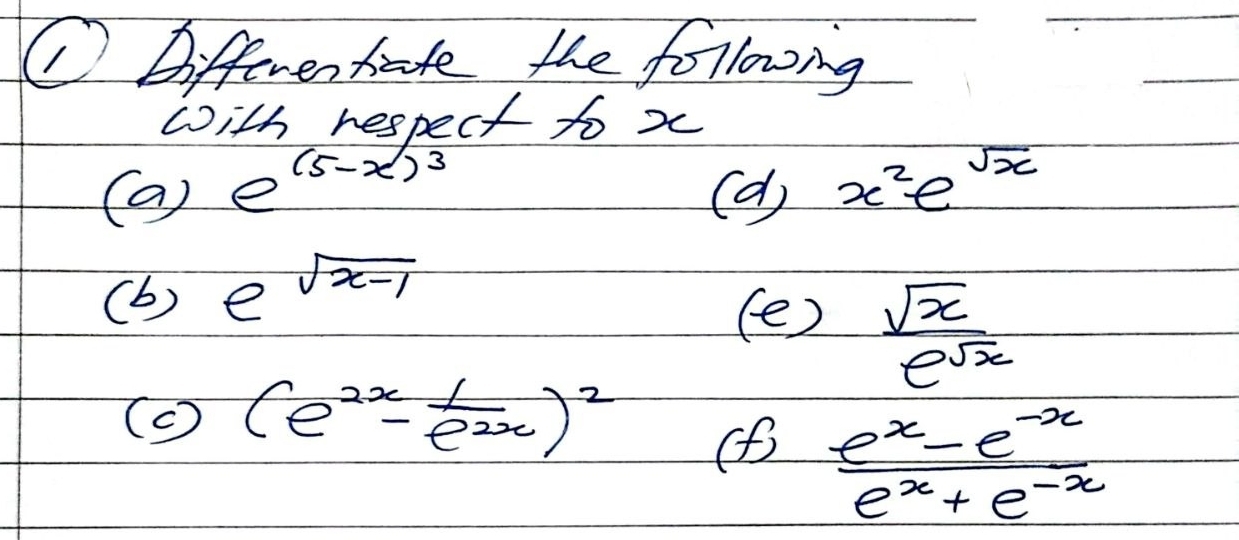 ① Differentiate the following
with respect to x
(a) e^{(5-x)^3}
(b) e^{\sqrt{x-1}}
(c) (e^{2x} - \frac{1}{e^{2x}})^2
(d) x^2 e^{\sqrt{x}}
(e) \frac{\sqrt{x}}{e^{\sqrt{x}}}
(f) \frac{e^x - e^{-x}}{e^x + e^{-x}}